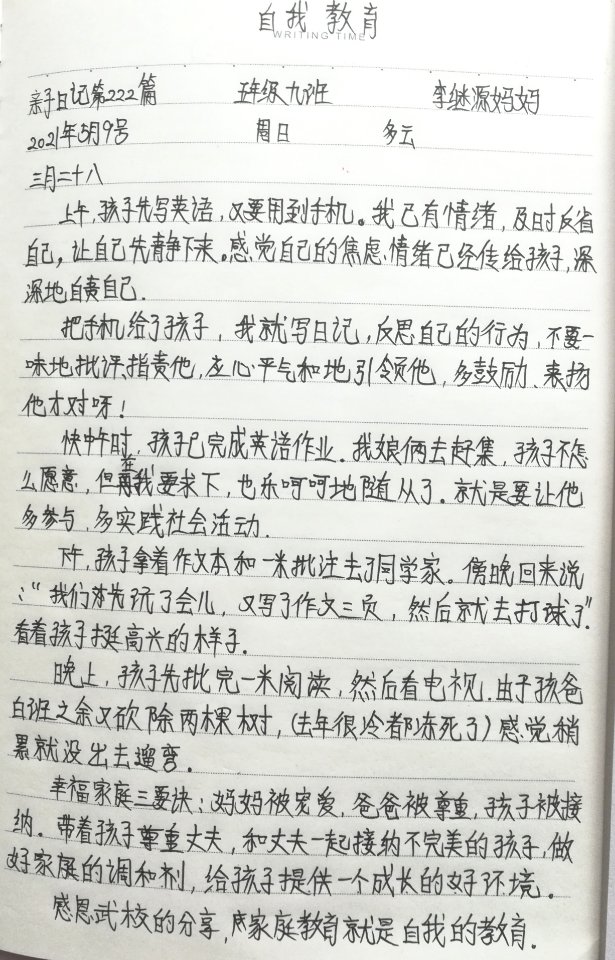 自我教育
WRITING TIME
亲子日记第222篇 五年级九班 李继源妈妈
2021年5月9号 周日 多云
三月二十八
上午,孩子先写英语,又要用到手机。我已有情绪,及时反省
自己,让自己先静下来。感觉自己的焦虑、情绪已经传给孩子,深
深地自责自己.
把手机给了孩子,我就写日记,反思自己的行为,不要一
味地批评、指责他,应心平气和地引领他,多鼓励、表扬
他才对呀!
快中午时,孩子已完成英语作业.我娘俩去赶集,孩子不怎
么愿意,但在我要求下,也乐呵呵地随从了.就是要让他
多参与,多实践社会活动.
下午,孩子拿着作文本和一米批注去了同学家。傍晚回来说
:“我们先玩了会儿,又写了作文三页,然后就去打球了”.
看着孩子挺高兴的样子.
晚上,孩子先批完一米阅读,然后看电视.由于孩爸
白班之余又砍除两棵树,(去年很冷都冻死了)感觉稍
累就没出去遛弯.
幸福家庭三要诀:妈妈被宠爱,爸爸被尊重,孩子被接
纳.带着孩子尊重丈夫,和丈夫一起接纳不完美的孩子,做
好家庭的调和剂,给孩子提供一个成长的好环境。
感恩武校的分享,家庭教育就是自我的教育.